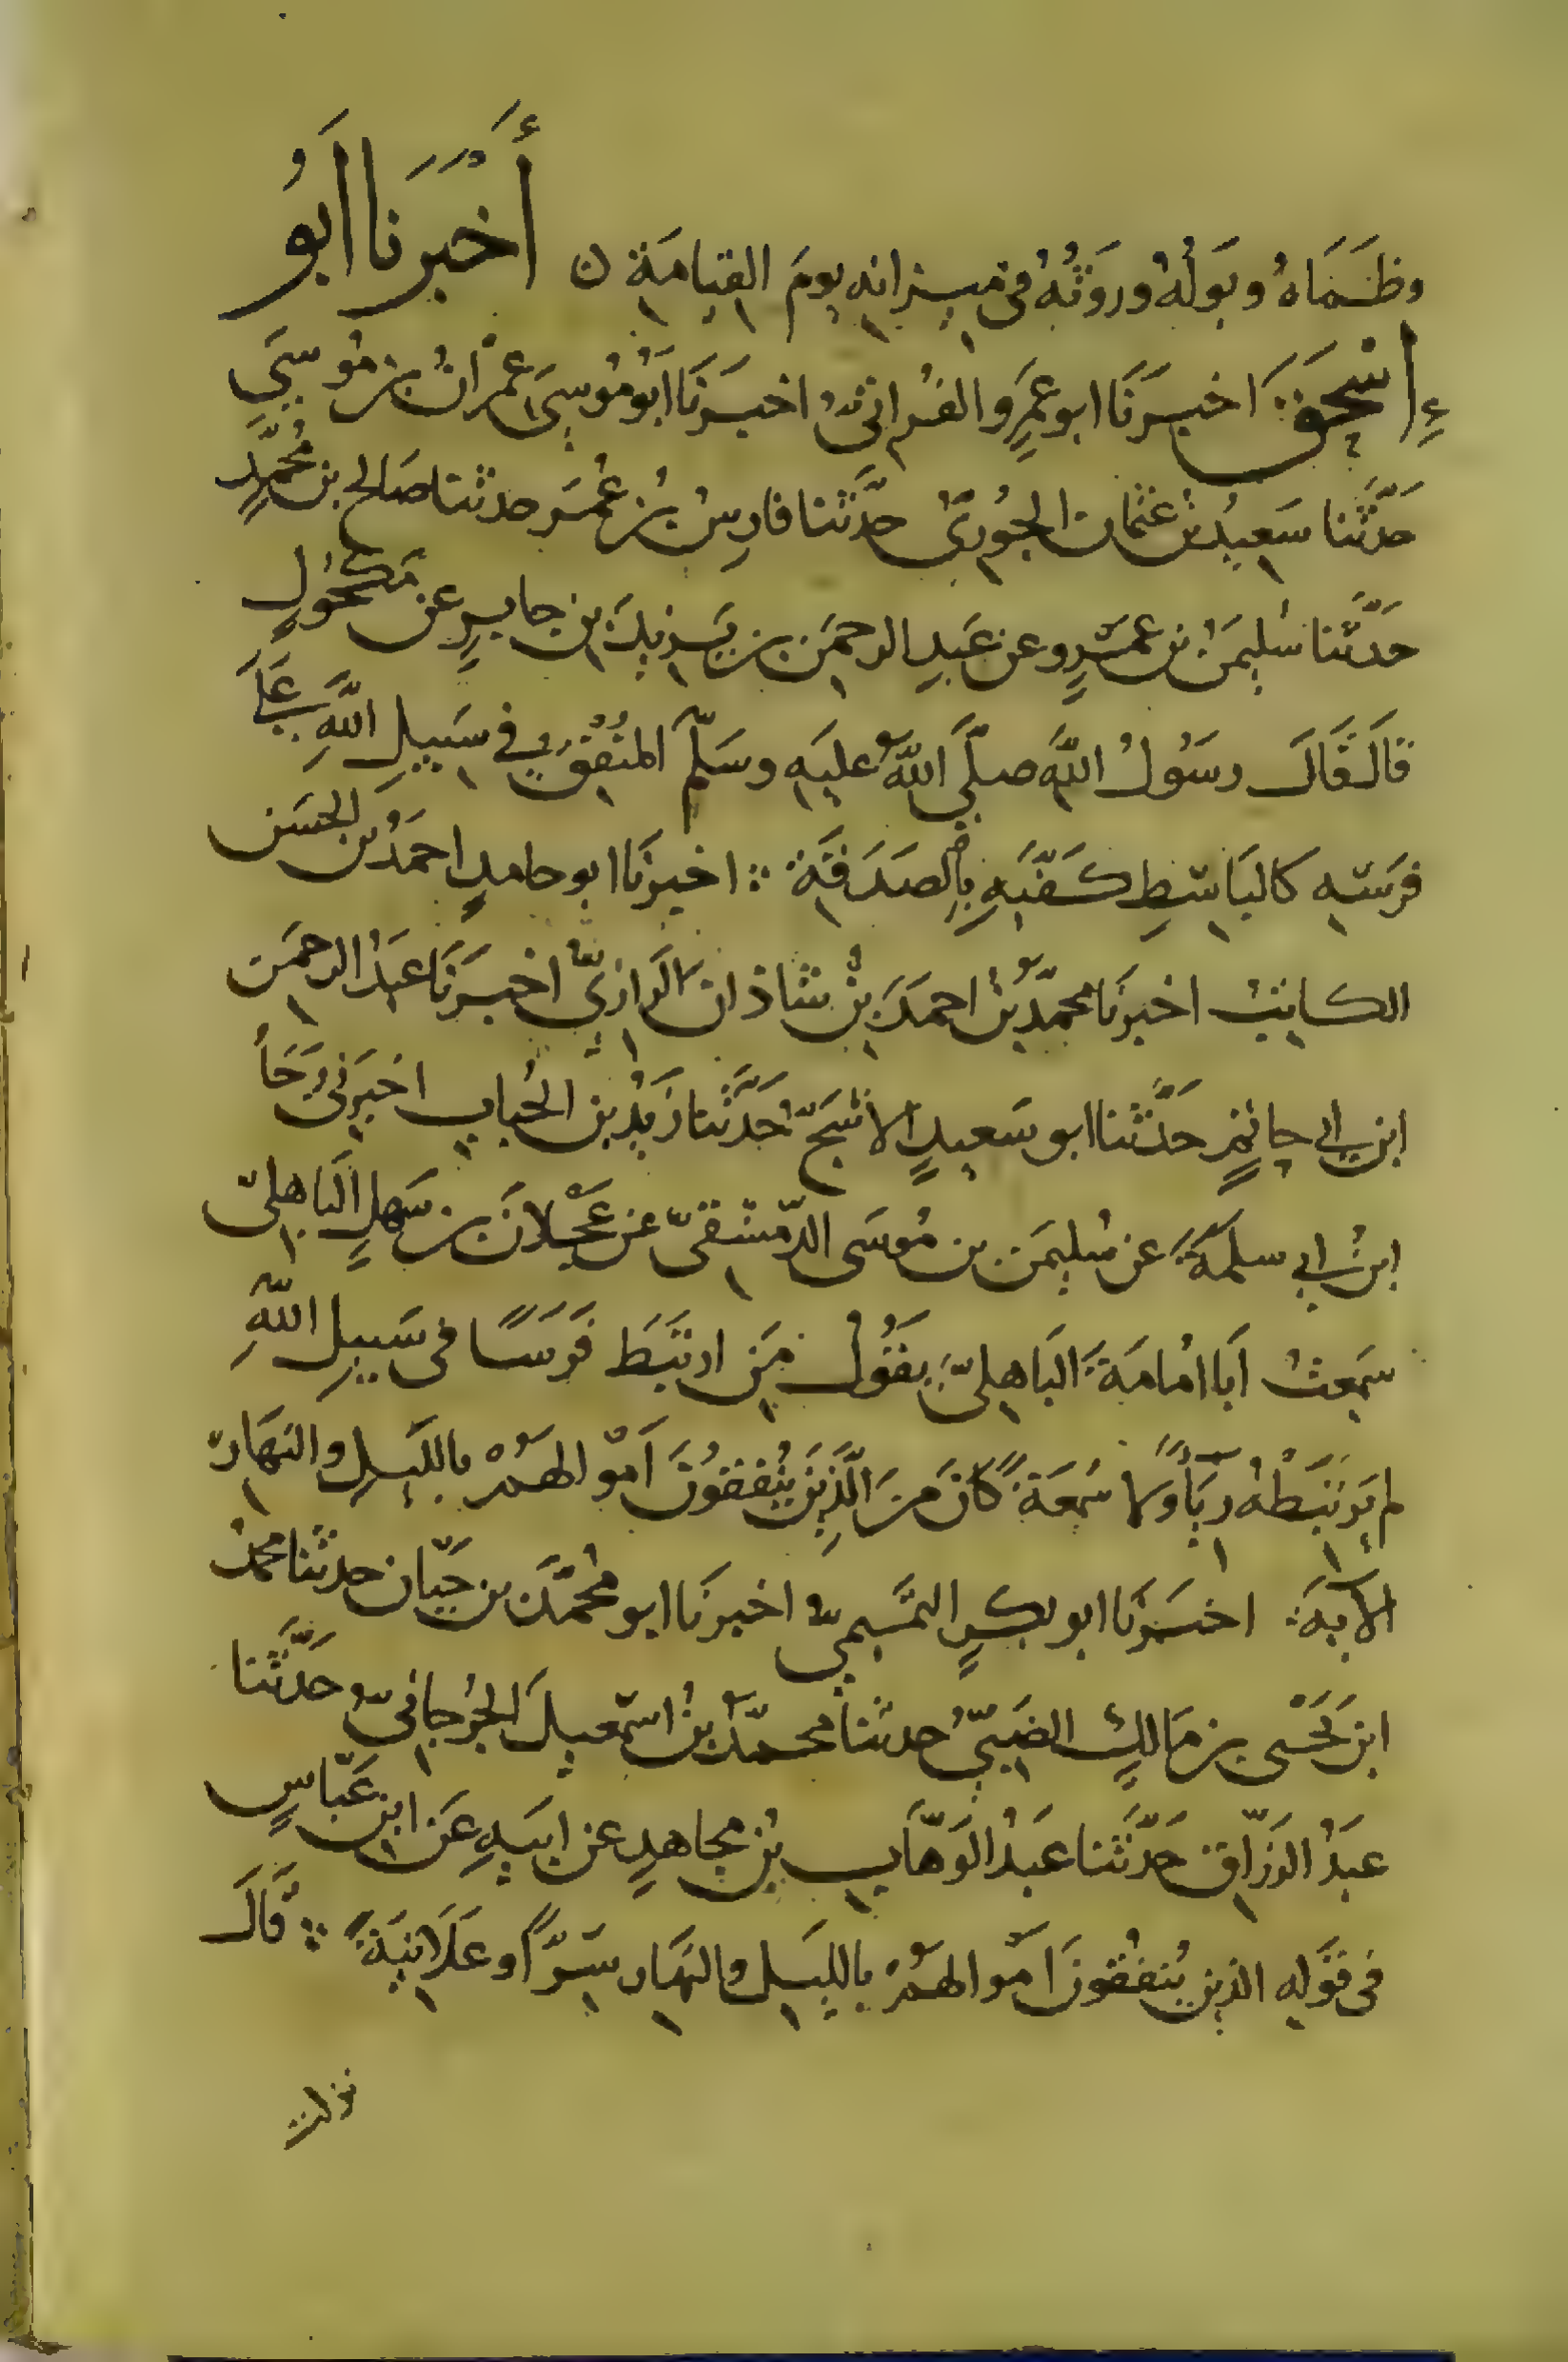 وظَمَاهُ وبَوْلُهُ ورَوَثُهُ في ميزانه يومَ القيامَةِ ن أَخْبَرَنَا أَبُو
إِسْحَقَ اخبرَنَا ابو عَمرٍو الفُراتىُّ اخبرَنَا أَبُو مُوسَى عِمْرَانُ بن مُوسَى
حَدَّثَنا سَعِيدُ بنُ عثمان الجُورىّ حدَّثَنا فارِسُ بنُ عُمَر حدثنا صَالح بن مُحمَّدٍ
حَدَّثَنا سُلَيمَنُ بن عمَرٍو عن عَبدِ الرحمَن بن يَزيدَ بن جابرٍ عن مَكحُولٍ
قالَ قَالَ رسَوُلُ اللَّهِ صلَّى اللَّهُ عليَهِ وسَلَّم المنُفِقُ في سَبيلِ اللَّهِ عَلَى
فرَسَهِ كالبَاسِطِ كَفَّيهِ بِالصَدَقَةِ ؞ اخبرنَا ابو حامدٍ احمَدُ بن الحسَن
الكاتِبُ اخبرنَا محمَّدُ بنُ احمدَ بنْ شاذان الرَازىّ اخبَرنَا عَبدُ الرحمَن
ابن ابي حاتمٍ حَدَّثنا ابو سَعيدٍ الاشَجّ حَدَّثَنا زَيدُ بن الحُباب اخبَرَنى رَجَأُ
ابنُ ابي سلمةَ عن سُليمَن بن مُوسَى الدّمشقىّ عن عَجْلانَ بن سَهلٍ الباهِلىّ
سَمعتُ اَبا امُامَةَ البَاهِلىّ يقَوُلُ مَن ارتبَطَ فَرَسًا فى سَبيلِ اللّهِ
لم يَرتَبَطْهُ رِيَأً ولا سُمعَةً كَانَ مِنَ الَّذِينَ يُنفقوُنَ اَمْوالهَمُ باللَيلِ والنهَارِ
الآيةَ اخبَرنَا ابو بكرٍ التَّميمىّ اخبرنَا ابو مُحمَّدَ بن حَيّان حدثنا محمدُ
ابن يَحْيى بن مَالكٍ الضبّىُّ حدثنا محمّدُ بنُ اسمعيلَ الجُرجانىّ حَدَّثَنا
عبَدُ الرَزّاق حَدَّثَنا عَبدُ الوَهّابِ بنُ مجاهدٍ عن ابيَهِ عَن ابن عَبّاسٍ
فى قَولِه الذين يُنفقُونَ اَمْوالهَمُ باللَيلِ والنهَارِ سِرّاً وعَلَانِيَةً ؞ قَالَ
نزلت